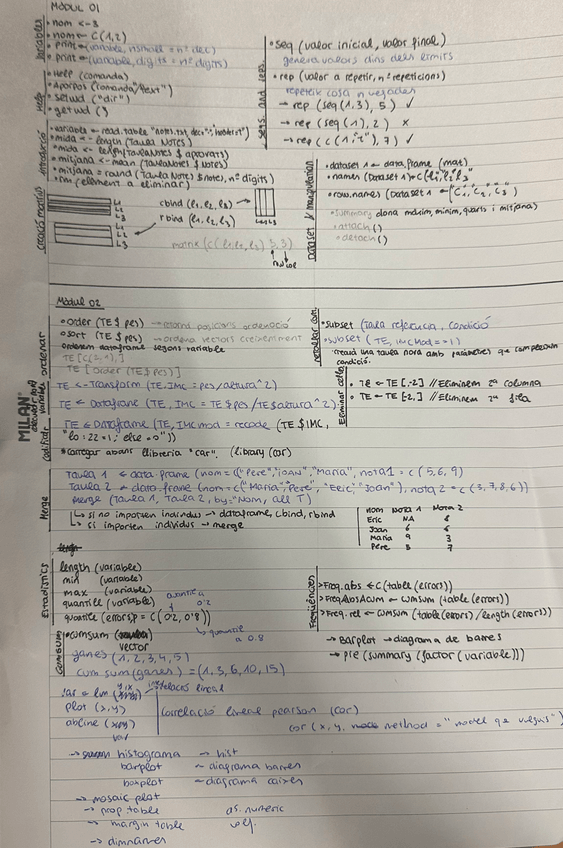 MÒDUL 01
Variables
• nom <- 3
• nom <- c(1,2)
• print (variable, nsmall = nº dec)
• print (variable, digits = nº digits)
Help
• Help (comanda)
• Apropos (comanda/"text")
• setwd ("dir")
• getwd ()
Introducció
• variable <- read.table ("noms.txt, dec=",", header=T)
• mida <- length (Taula Notes)
• mida <- length(TaulaNotes $ aprovats)
• mitjana <- mean (TaulaNotes $ Notes)
• mitjana = round (Taula Notes) $ notes, nº digits)
• rm (element a eliminar)
L1
L2
L3
cbind (l1, l2, l3)
rbind (l1, l2, l3)
L1 L2 L3
L1
L2
L3
matrix (c(l1, l2, l3) 3, 3)
row col
seqs. and reps.
• seq (valor inicial, valor final)
genera valors dins dels límits
• rep (valor a repetir, nº repeticions)
repeteix cosa n vegades
→ rep (seq(1,3), 5) ✓
→ rep (seq(1), 2) ×
→ rep (c(1,"t"), 7) ✓
Dataset & manipulation
• dataset 1 <- data.frame (mat)
• names (Dataset 1) <- c("l1","l2","l3")
• row.names (Dataset 1 <- ("C1","C2","C3")
• Summary dona màxim, mínim, quarts i mitjana)
• attach ()
• detach ()
Mòdul 02
ordenar
• Order (TE $ pes) → retorna posicions ordenació
• sort (TE $ pes) → ordena vectors creixement
Ordenem dataframe segons variable
TE [c(2,1),]
TE [order (TE $ pes)]
MILAN
variables
TE <- Transform (TE, IMC = pes/altura^2)
TE <- Dataframe (TE, IMC = TE $ pes/TE $ altura^2)
Codificar
TE <- Dataframe (TE, IMC mod = recode (TE $ IMC,
"lo:22=1; else=0"))
• Carregar abans llibreria "car". (library (car)
• subset (Taula referencia, condició
• subset (TE, IMC Mod == 1)
creació una taula nova amb paràmetres que compleixin
condició.
Eliminar
• TE <- TE [,-2] // Eliminem 2ª columna
• TE <- TE [-2,] // Eliminem 2ª fila
Merge
Taula 1 <- data.frame (nom = c("Pere","JOAN","Maria", nota1 = c(5,6,9)
Taula 2 <- data.frame (nom = c("Maria","Pere", "Eric","Joan"), nota2 = c(3,7,8,6))
Merge (Taula 1, Taula 2, by:"Nom, all T)
↳ si no importen individus → dataframe, cbind, rbind
↳ si importen individus → merge
nom Nota 1 Nota 2
Eric NA 8
Joan 6 6
Maria 9 3
Pere 5 7
Estadístics
length (variable)
min (variable)
max (variable)
quantile (variable)
quantile (errors, p = c(0'2, 0'8))
quantile
0'2
↳ quantile
a 0.8
Freqüències
> Freq.abs <- C(table (errors))
> FreqAbsACum <- cumsum (table (errors))
> Freq.rel <- cumsum (table (errors) / length (errors))
→ Barplot → diagrama de barres
→ pie (summary (factor (variable)))
Cumsum
• cumsum
vector
ganes (1,2,3,4,5)
cum sum (ganes) = (1,3,6,10,15)
plot (x,y)
abline
relació lineal
Correlació lineal pearson (cor)
cor (x, y, method = "model que vulguis")
→ histograma → hist
barplot ← diagrama barres
boxplot ← diagrama caixes
→ mosaic plot
→ prop.table as.numeric
→ margin table
→ dimnames